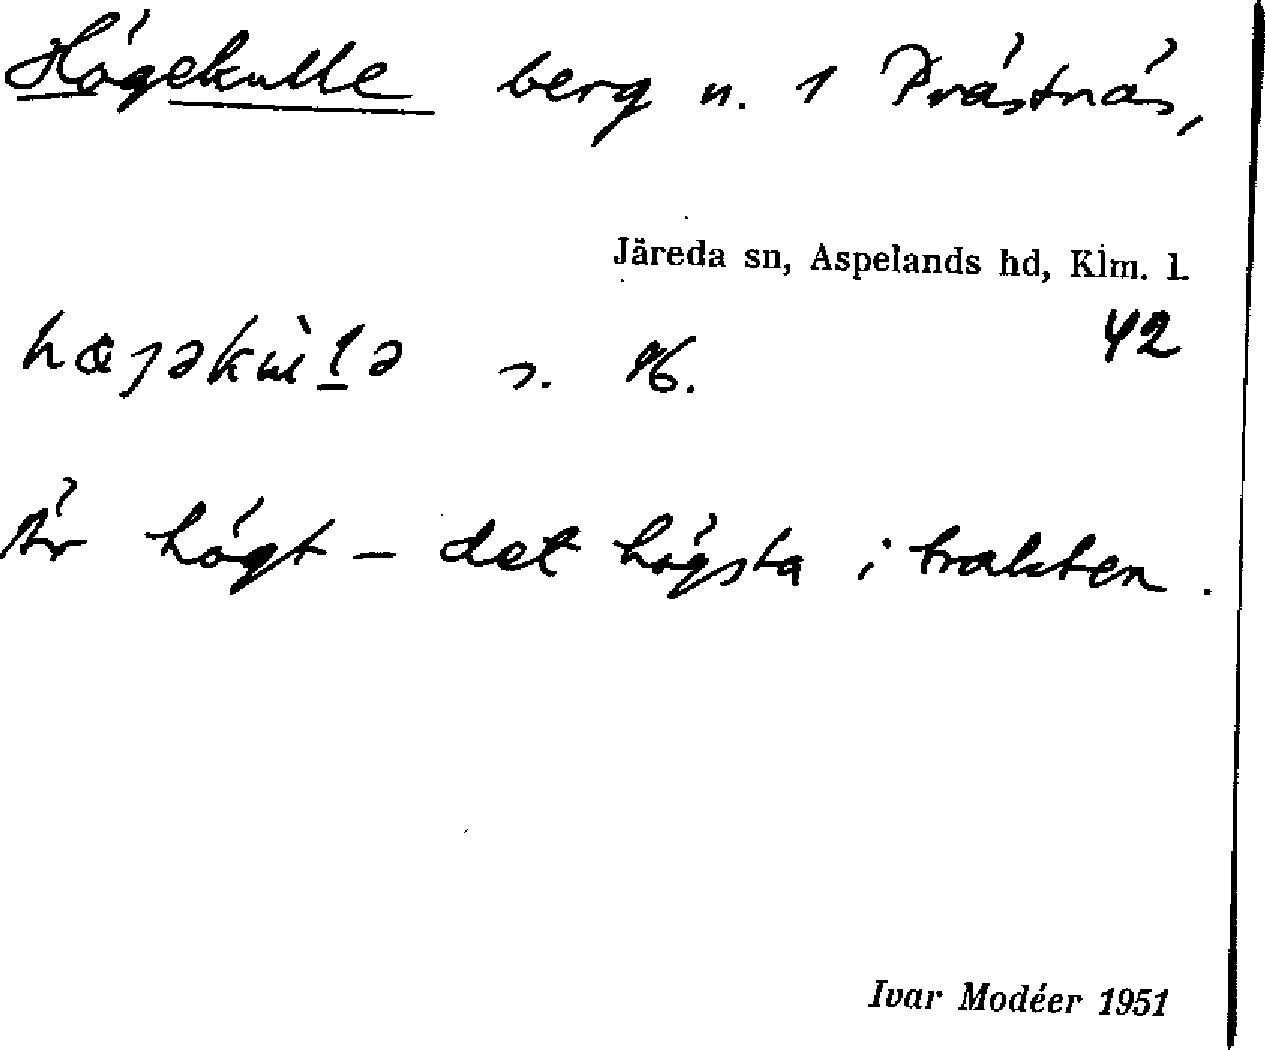 Högekulle berg n. 1 Prästnäs,
Järeda sn, Aspelands hd, Klm. l.
42
Är högt – det högsta i trakten.
Ivar Modéer 1951